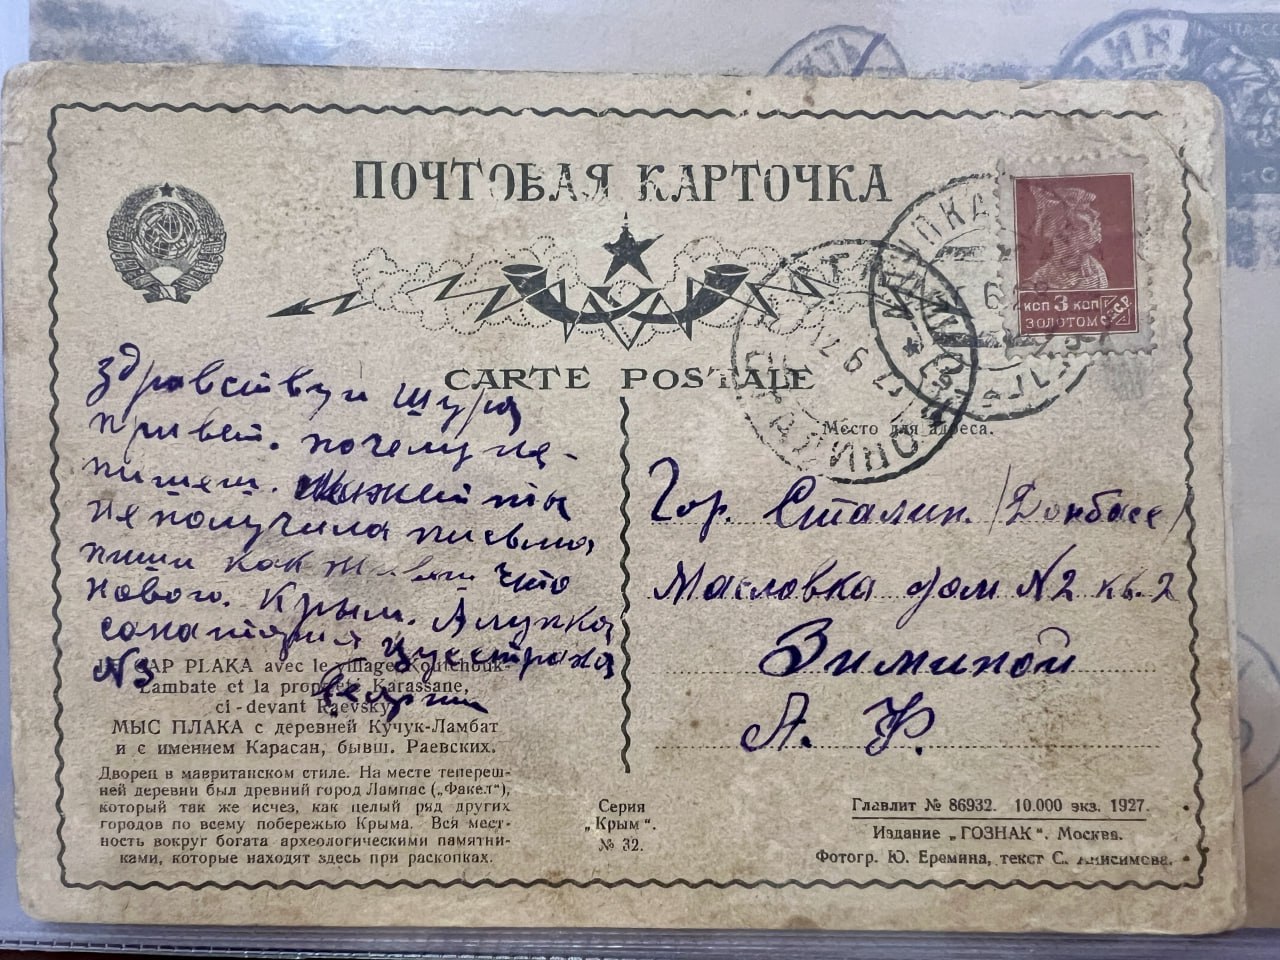 ПОЧТОВАЯ КАРТОЧКА
CARTE POSTALE
КОП 3 КОП
ЗОЛОТОМ
АЛУПКА
Место для адреса.
здравствуй Шура
привет. почему не-
пишеш. Может ты
не получила письма
пиши как живеш что
нового. Крым. Алупка
санатория
№3
Гор. Сталин. /Донбасс/
Масловка дом №2 кв. 2
Зиминой
А. Ф.
CAP PLAKA avec le village Koutchouk-
Lambate et la propriété Karassane,
ci-devant Raevsky
МЫС ПЛАКА с деревней Кучук-Ламбат
и с имением Карасан, бывш. Раевских.
Дворец в мавританском стиле. На месте тепереш-
ней деревни был древний город Лампас („Факел“),
который так же исчез, как целый ряд других
городов по всему побережью Крыма. Вся мест-
ность вокруг богата археологическими памятни-
ками, которые находят здесь при раскопках.
Серия
„Крым“.
№ 32.
Главлит № 86932. 10.000 экз. 1927.
Издание „ГОЗНАК“. Москва.
Фотогр. Ю. Еремина, текст С. Анисимова.